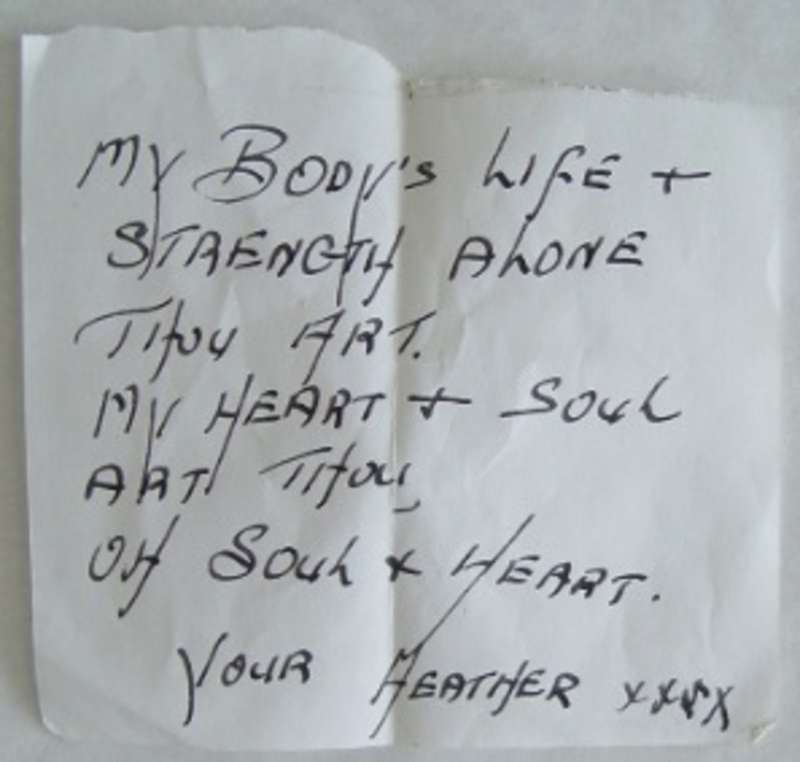 My BODY'S LIFE +
STRENGTH ALONE
THOU ART.
MY HEART + SOUL
ART THOU,
OH SOUL + HEART.
YOUR HEATHER xxxx